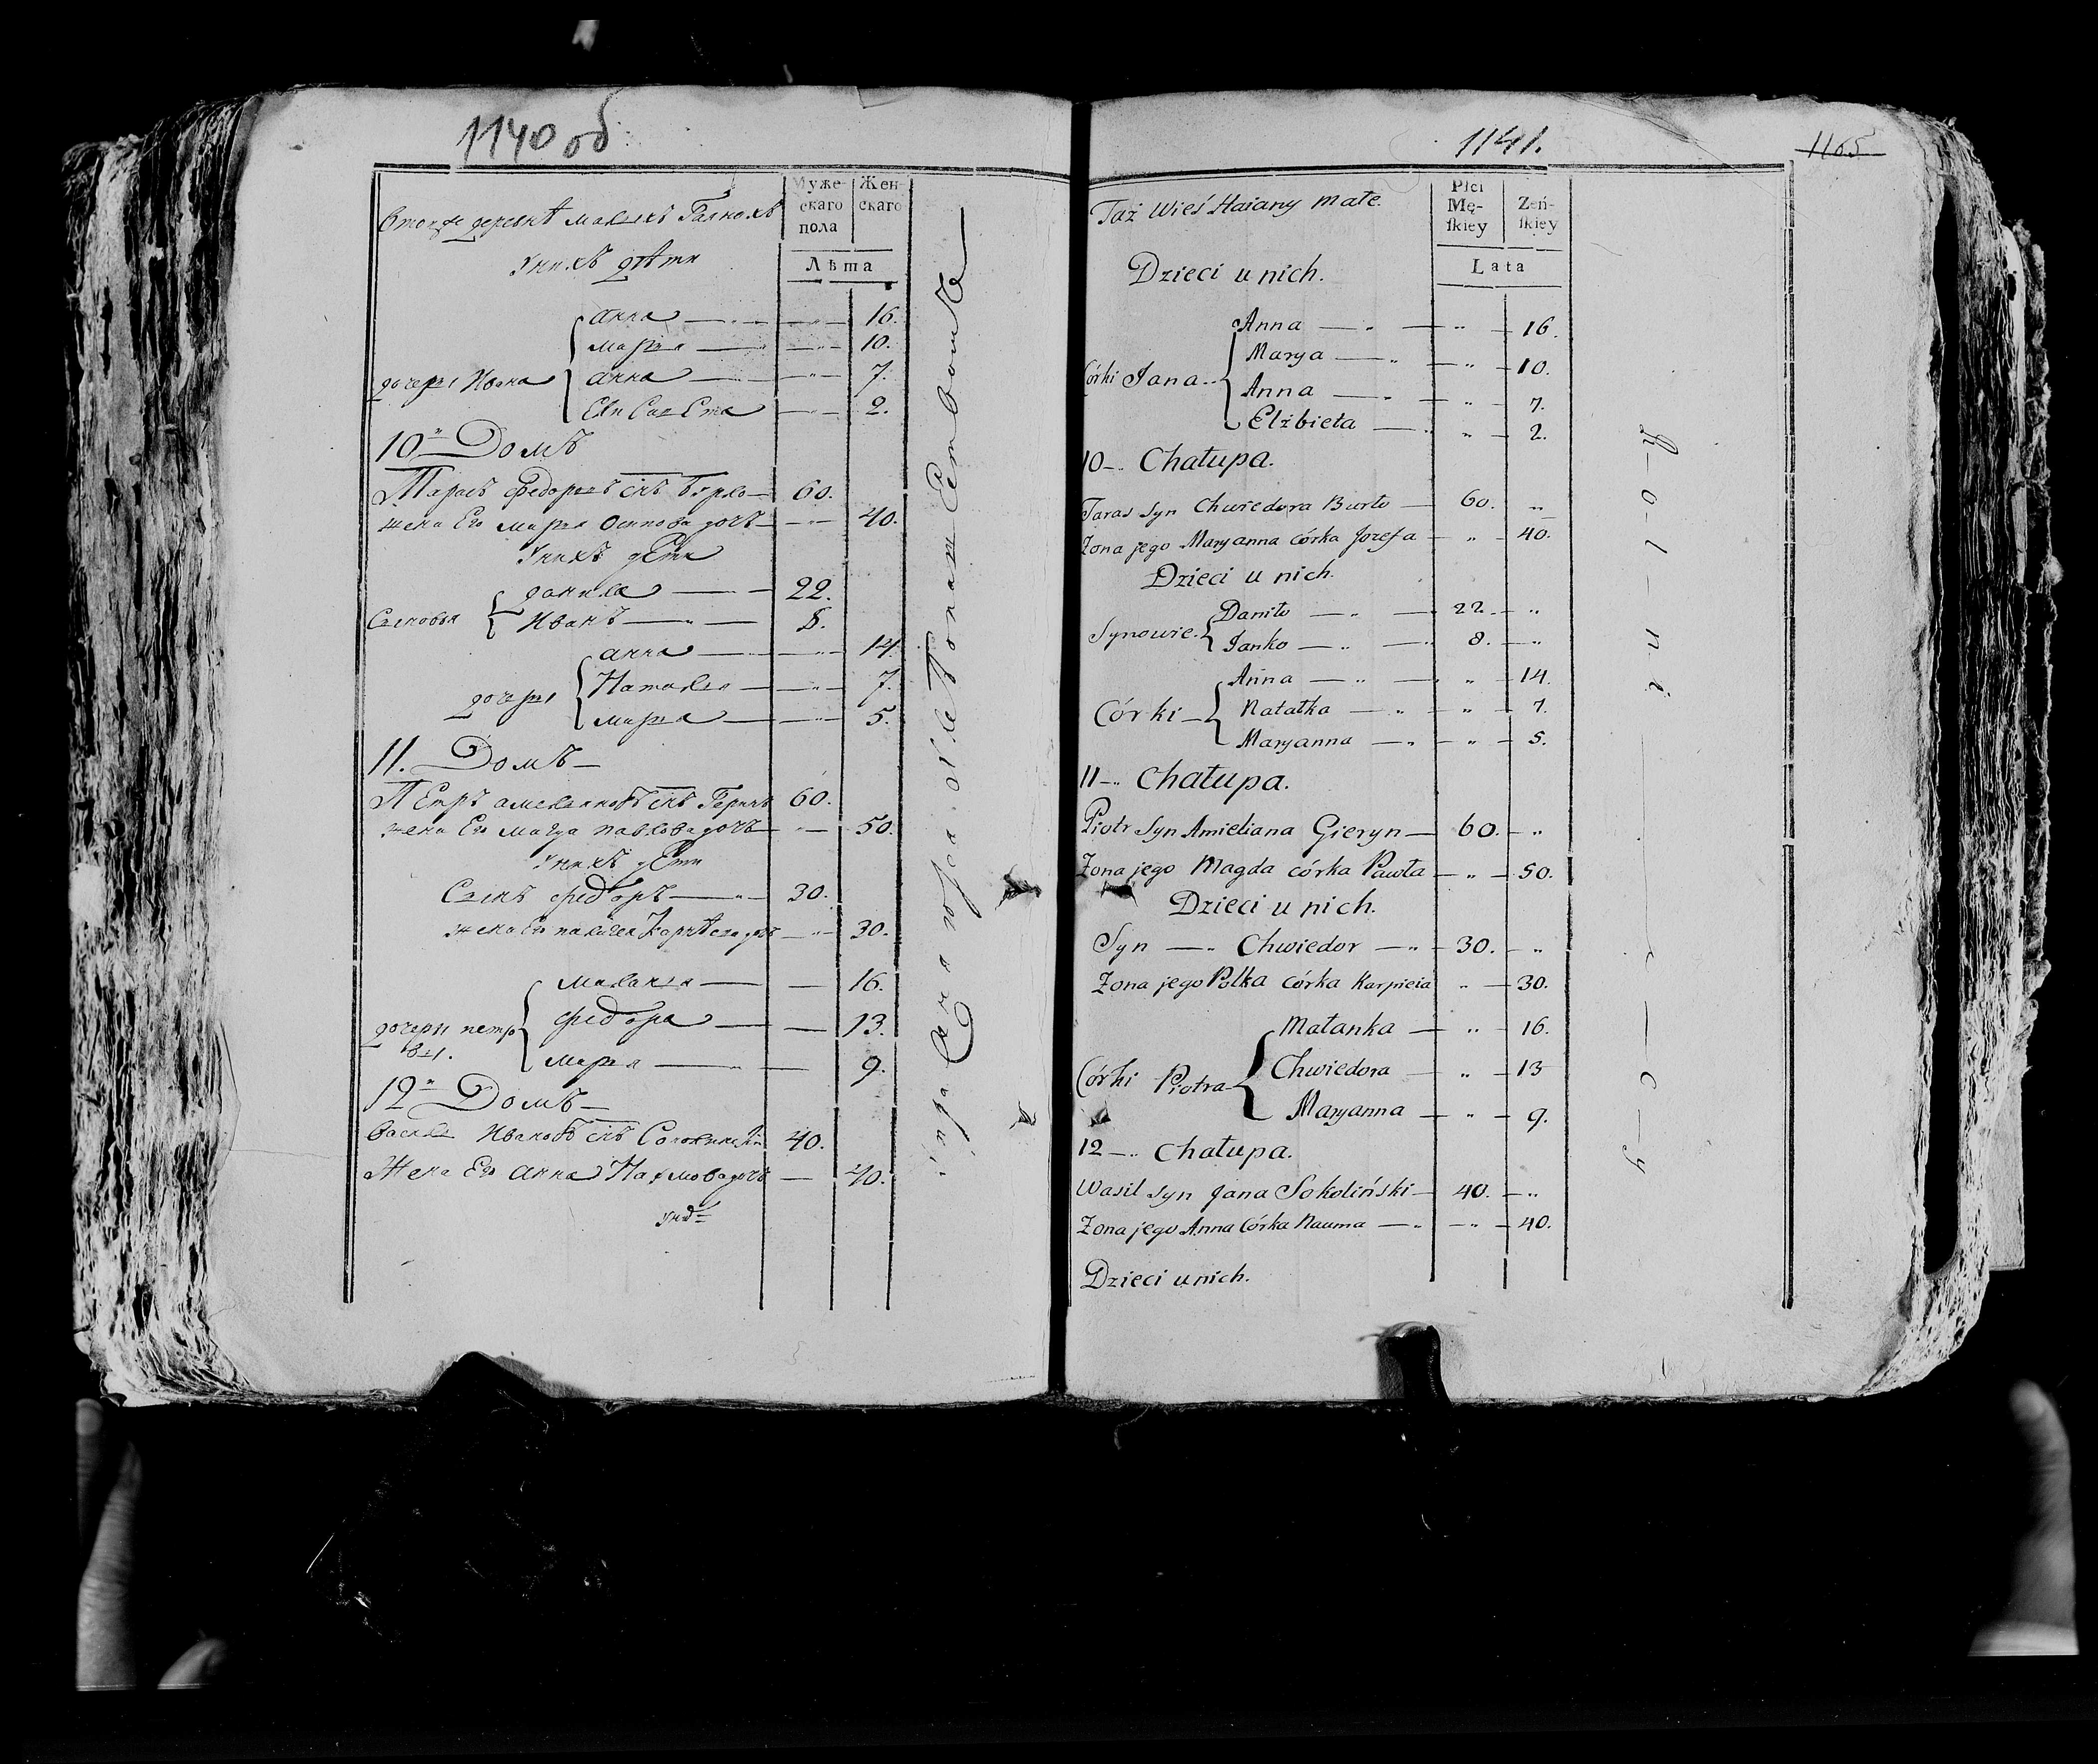 1140 об
Муже-
скаго
пола
Жен-
скаго
Лѣта
Втой же деревнѣ малыхъ
Унихъ дѣти
дочери Ивана
анна — 16.
марья — 10.
анна — 7.
Елисавета — 2.
10 Домъ
Тарасъ федоровъ снъ Бурло — 60.
жена Его марья Осипова дочь — 40.
Унихъ дѣти
Сыновья
данила — 22.
Иванъ — 8.
дочери
анна — 14.
Наталья — 7.
марья — 5.
11. Домъ —
Петръ амельяновъ снъ Геринъ 60.
жена Его магда павлова дочь — 50.
Унихъ дѣти
Сынъ федоръ — 30.
жена Его — 30.
дочери петро
вы.
маланья — 16.
федора — 13.
марья — 9.
12 Домъ —
Василь Ивановъ снъ 40.
Жена Его анна Наумова дочь — 40.
1141.
1165
Płci
Mę-
skiey
Żeń-
skiey
Lata
Taż Wieś Haiany małe.
Dzieci u nich.
Córki Jana
Anna — " — 16.
Marya — " — 10.
Anna — " — 7.
Elżbieta — " — 2.
10 —" Chałupa.
Taras syn Chwiedora Burło — 60. "
Żona jego Maryanna córka Jozefa — " — 40.
Dzieci u nich.
Synowie
Daniło — 22. — "
Janko — 8. — "
Córki
Anna — " — 14.
Natałka — " — 7.
Maryanna — " — 5.
11 —" Chałupa.
Piotr syn Amieliana Gieryn — 60. — "
Żona jego Magda córka Pawła — " — 50.
Dzieci u nich.
Syn —" Chwiedor —" — 30. — "
Żona jego Połka córka Karpieia " — 30.
Córki Piotra
Małanka — " — 16.
Chwiedora — " — 13
Maryanna — " — 9.
12 —" Chałupa.
Wasil syn Jana Sokoliński — 40. — "
Żona jego Anna Córka Nauma — " — 40.
Dzieci u nich.